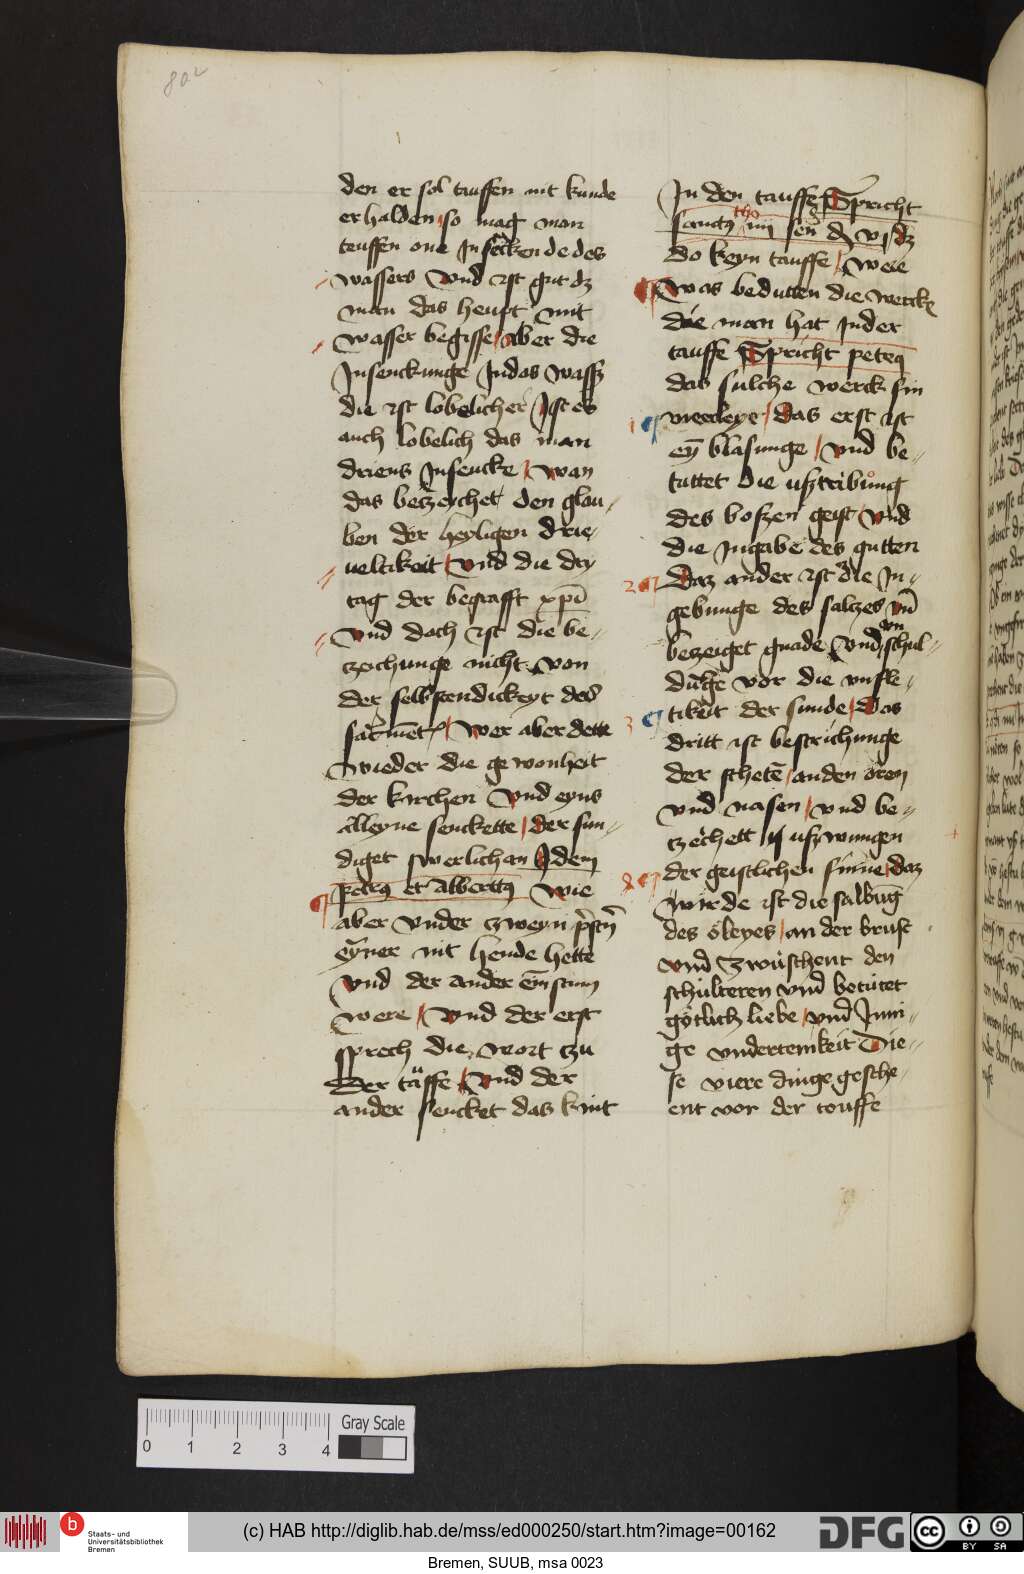 802
den er sol tauffen nit kunde
erhalden so mag man
teuffen one Insenckende des
wassers Vnd ist gut dz
man das heupt mit
wasser begisse aber die
Insenckunge Indas wassz
die ist lobelicher Ist es
auch lobelich das man
driens Insencke wan
das betzeychet den glau-
ben der heyligen drie-
ueltikeit vnd die dry
tag der begrafft xpī
vnd doch ist die be-
zeichunge nicht von
der selbstendickeyt des
wer aber dette
wieder die ge wonheit
der kirchen vnd eyns
alleyne senckette der sun-
diget swerlichen Idem
petrus et albertus Wie
aber vnder zweyn
eyner nit hende hette
vnd der ander ein stum
were Vnd der erst
sprech die wort zu
Der tauffe Vnd der
ander sencket das kint
In den tauffz Spricht
do keyn tauffe were
Was bedutten die werck
die man hat Inder
tauffe Spricht petrus
das sulche werck sin
vierleye das erst ist
1
eȳ blasunge Vnd be-
tuttet die vsztribung
des boszen geist Vnd
die Ingabe des gutten
2 Daz ander ist die In-
gebunge des saltzes vn̄
betzeiget gnade vnd von schul-
vor die vnfle-
3 tikeit der sunde Das
dritt ist bestrichunge
der an den oren
vnd nasen vnd be-
der geistlichen sinne daz
wirde ist die salbūg
des oleyes an der brust
vnd zwuschent den
schulteren vnd betutet
gotlich liebe vnd Inni-
ge vndertenikeit Die-
se viere dinge gesche-
ent vor der touffe
0 1 2 3 4
Gray Scale
b
Staats- und
Universitätsbibliothek
Bremen
(c) HAB http://diglib.hab.de/mss/ed000250/start.htm?image=00162
DFG
cc BY SA
Bremen, SUUB, msa 0023